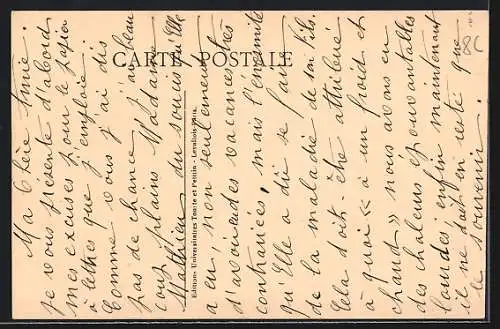 CARTE POSTALE
Ma Chère Amie.
je vous présente d'abord
mes excuses pour le papier
à lettres que j'emploie.
Comme vous j'ai dis
pas de chance, j'ai beau
vous plains Madame
Matthieu du soucis qu'Elle
a eu, non seulement très
d'avoir des vacances
contrariées, mais l'énormité
qu'Elle a dû se faire
de la maladie de son fils.
Cela doit-être attribué
à quoi « à un froid et
chaud » nous avons eu
des chaleurs épouvantables
lourdes enfin maintenant
il ne doit en resté que
le souvenir.
Editions Universitaires Tourte et Petitin - Levallois-Paris.
8C